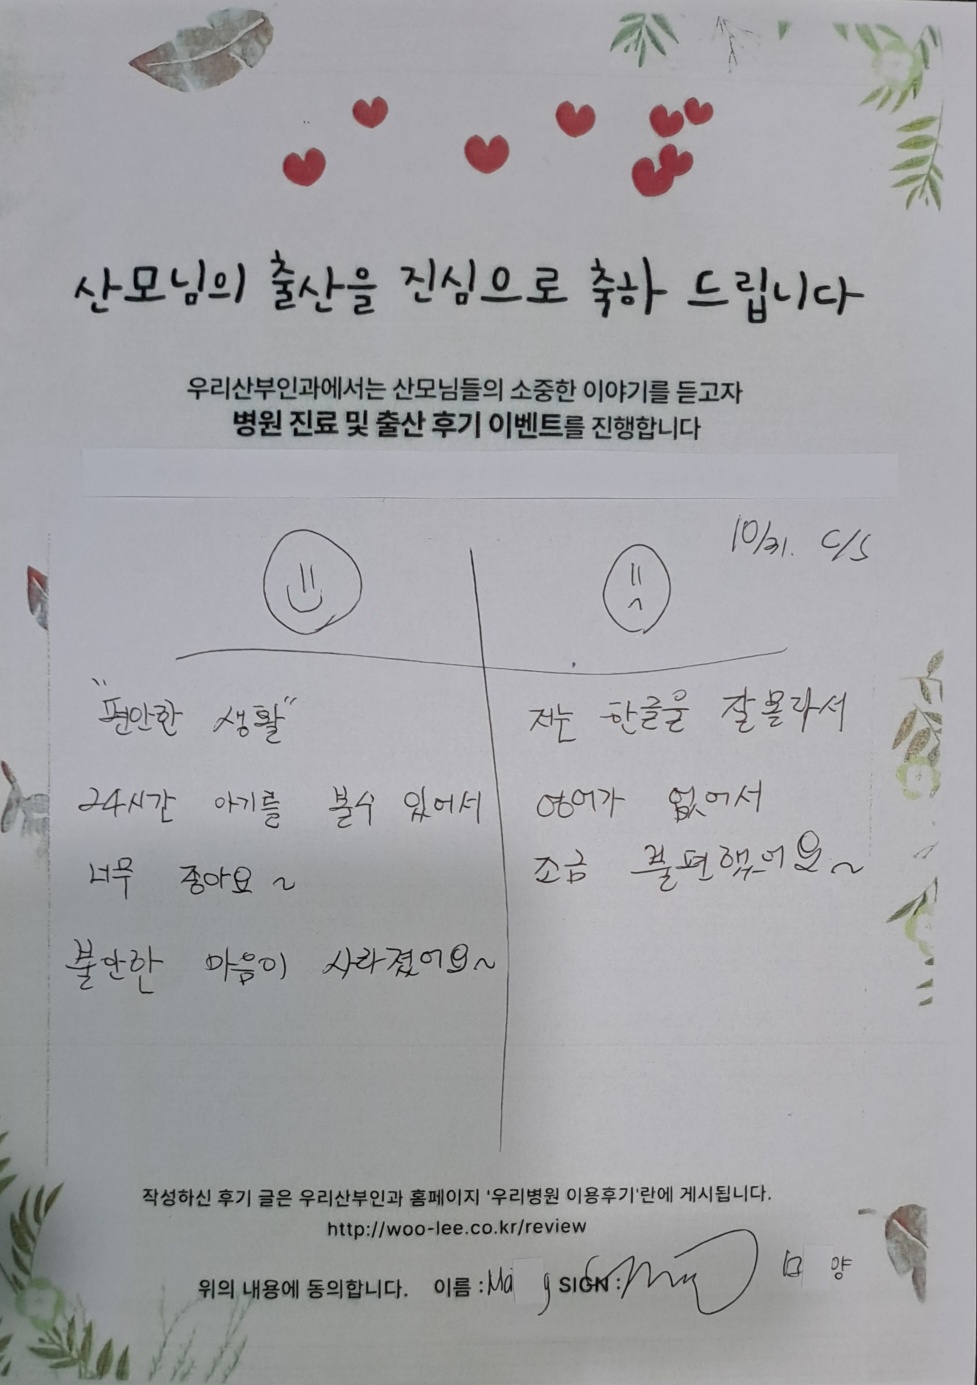 산모님의 출산을 진심으로 축하 드립니다
우리산부인과에서는 산모님들의 소중한 이야기를 듣고자
병원 진료 및 출산 후기 이벤트를 진행합니다
10/31. C/S
"편안한 생활"
24시간 아기를 볼수 있어서
너무 좋아요~
불안한 마음이 사라졌어요~
저는 한글을 잘몰라서
영어가 없어서
조금 불편했어요~
작성하신 후기 글은 우리산부인과 홈페이지 '우리병원 이용후기'란에 게시됩니다.
http://woo-lee.co.kr/review
위의 내용에 동의합니다. 이름 : Ma g SIGN : 양